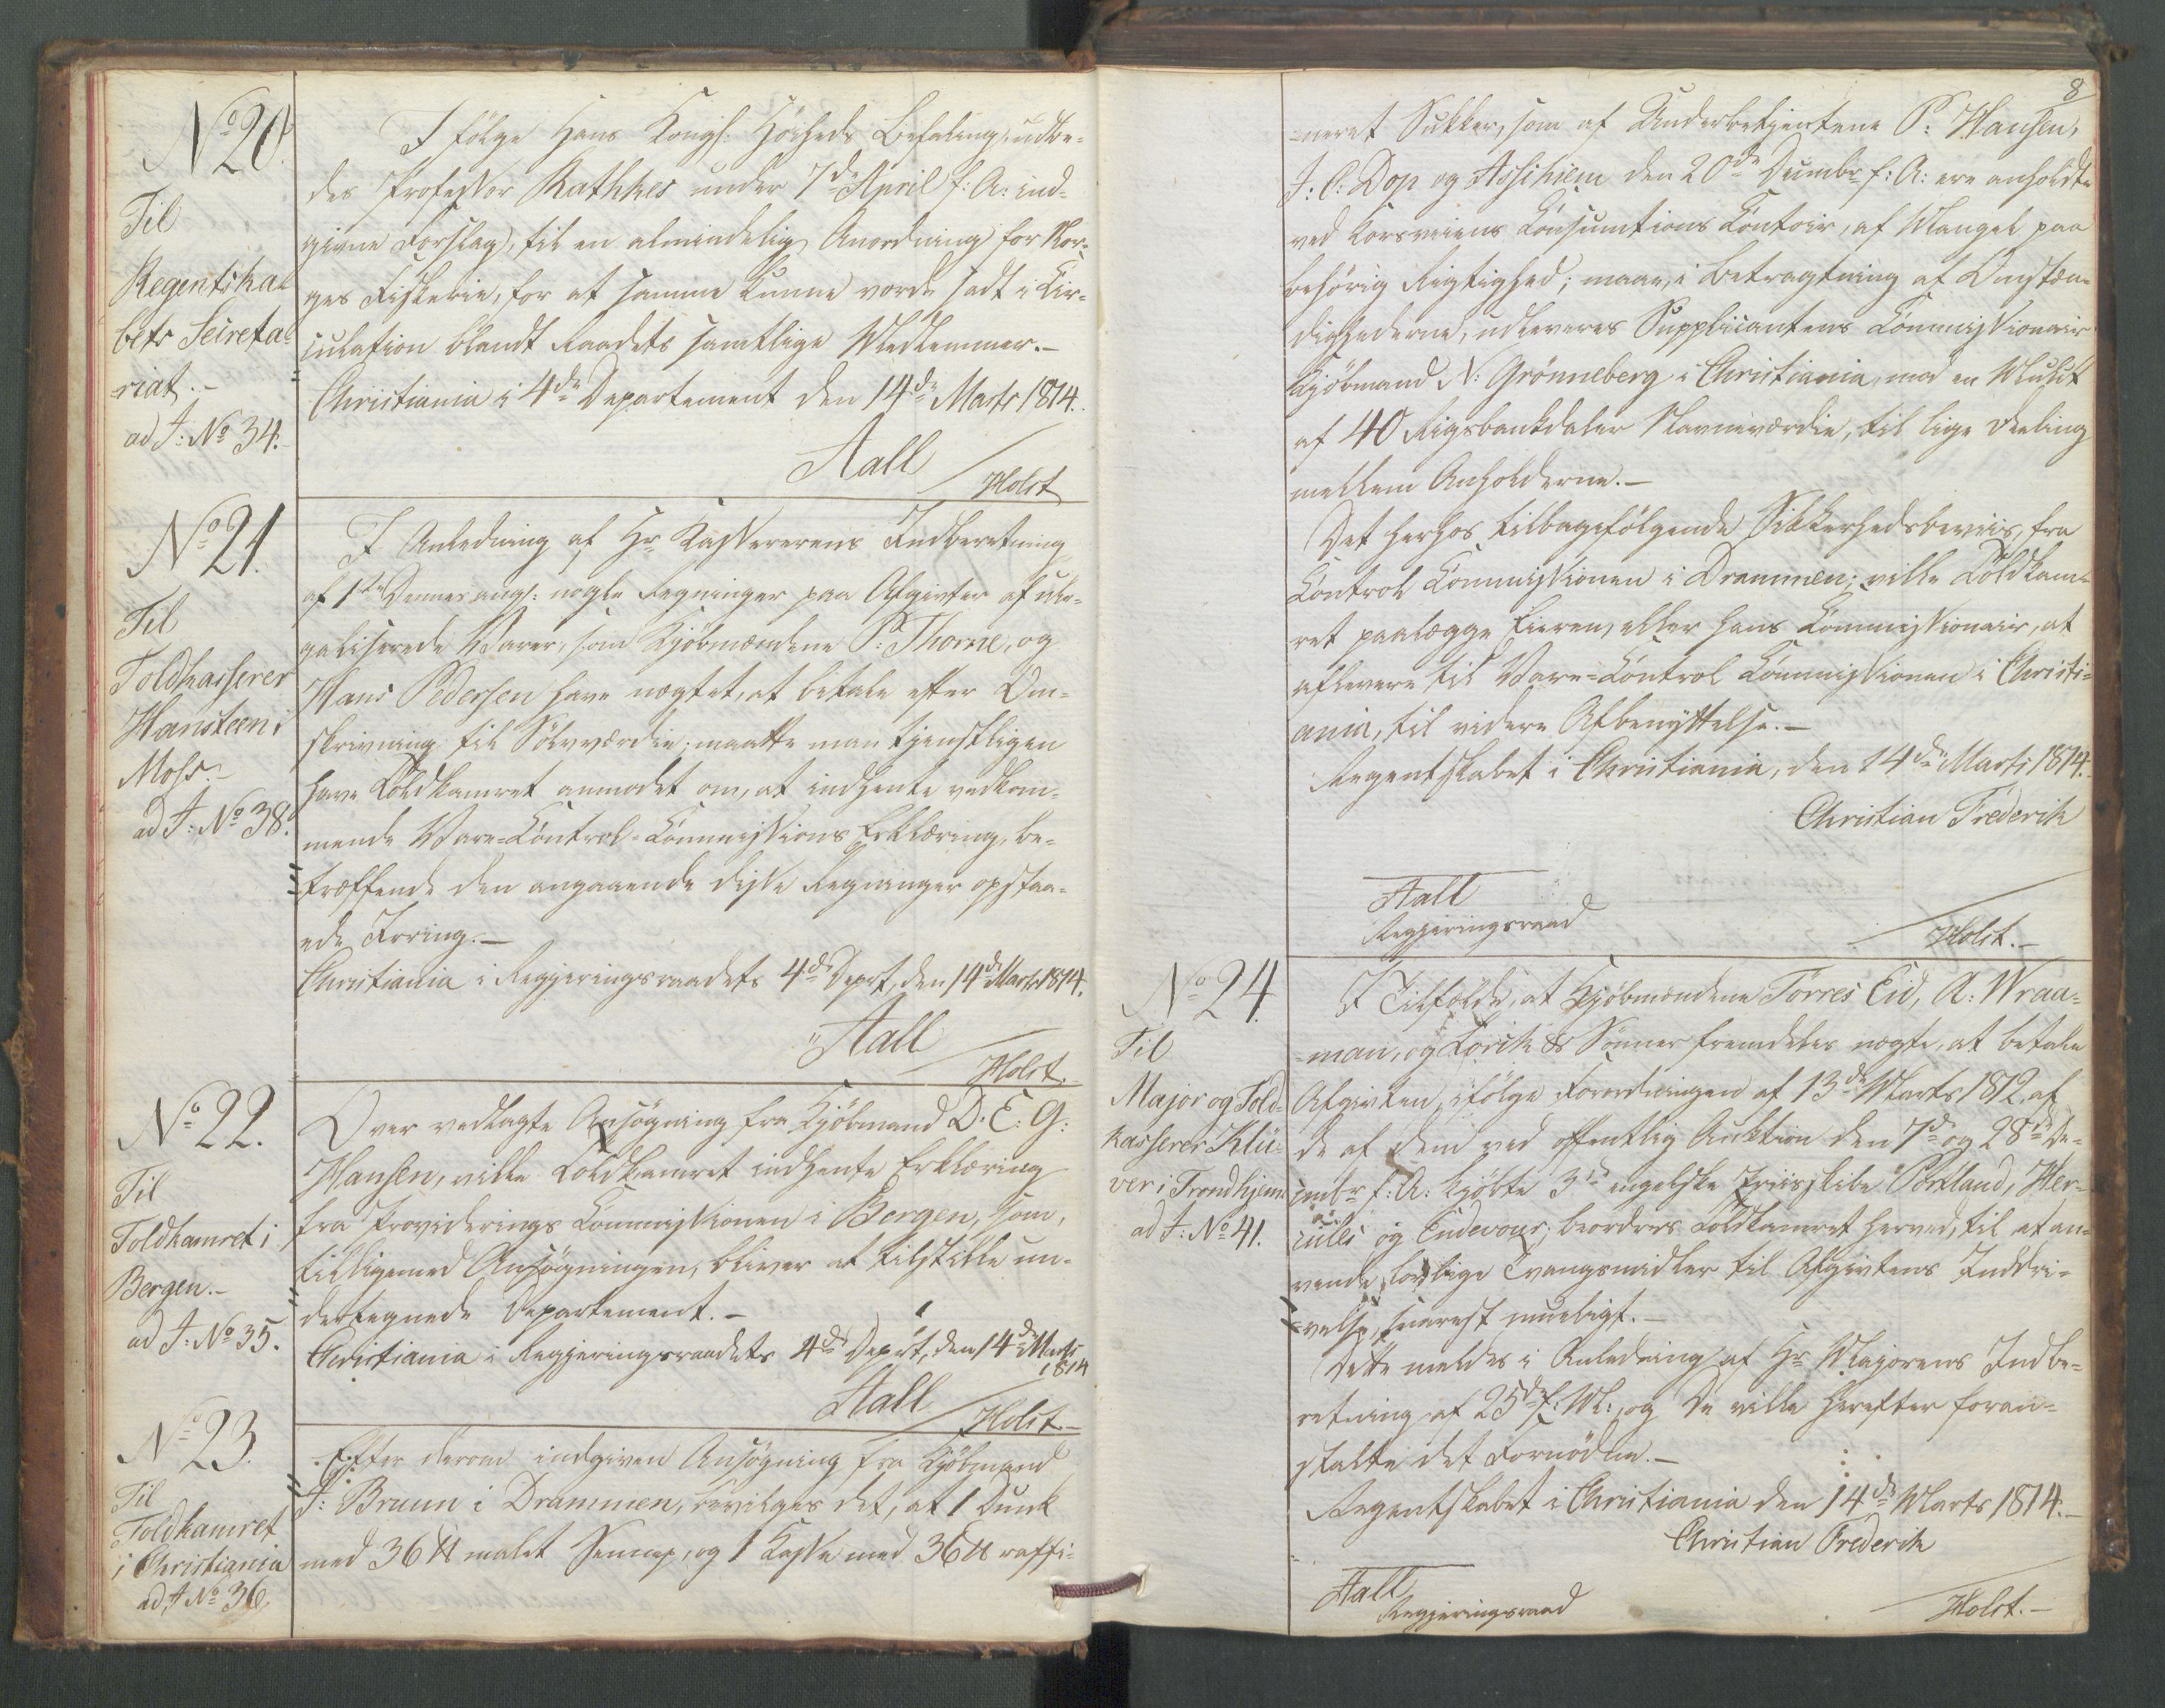 No 20.
Til
Regentska-
bets Secreta-
riat.-
ad J: No 34.-
I følge Hans Kongl: Høiheds Befaling, udbe-
des Professor Rathkes under 7de April f: A: ind-
givne Forslag, til en almindelig Anordning for Nor-
ges Fiskerie, for at samme kunne vorde sadt i Cir-
culation blandt Raadets samtlige Medlemmer.-
Christiania i 4de Departement den 14de Marts 1814.
Aall
Holst
No 21.
Til
Toldkasserer
Hansteen i
Moss.-
ad J: No 38.
I Anledning af Hr Kassererens Indberetning
af 1ste Dennes angl: nogle Regninger paa Afgivter af ule-
galiserede Varer, som Kjøbmændene P: Thorne, og
Hans Pedersen have nægtet, at betale efter Om-
skrivning til Sølvværdie; maatte man tjenstligen
have Toldkamret anmodet om, at indhente vedkom-
mende Vare-Control-Commissions Erklæring, be-
træffende den angaaende disse Regninger opstaa-
ede Irring.-
Christiania i Regjeringsraadets 4de Depart, den 14de Marts 1814.
Aall
Holst.
No 22.
Til
Toldkamret i
Bergen.-
ad J: No 35.
Over vedlagte Ansøgning fra Kjøbmand D. E: G:
Hansen, ville Toldkamret indhente Erklæring
fra Providerings Commissionen i Bergen, som,
tilligemed Ansøgningen, bliver at tilstille un-
dertegnede Departement.-
Christiania i Regjeringsraadets 4de Depart, den 14de Marts
1814
Aall
Holst.-
No 23.
Til
Toldkamret
i Christiania
ad J No 36.
Efter derom indgiven Ansøgning fra Kjøbmand
J: Bruun i Drammen, bevilges det, at 1 Dunk
med 36 ℔ malet Sennep, og 1 Kasse med 36 ℔ raffi-
8
-neret Sukker, som af Underbetjentene P: Hansen,
J. C: Dop og Assihiem den 20de Decembr f: A: ere anholdte
ved Korsveiens Consumtions Contoir, af Mangel paa
behørig Rigtighed; maae, i Betragtning af Omstæn-
dighederne, udleveres Supplicantens Commissionair
Kjøbmand N: Grønneberg i Christiania, mod en Mulct
af 40 Rigsbankdaler Navneværdie, til lige Deeling
mellem Anholderne.-
Det herhos tilbagefølgende Sikkerhedsbeviis, fra
Control Commissionen i Drammen; ville Toldkam-
ret paalægge Eieren, eller hans Commissionair, at
aflevere til Vare-Control Commissionen i Christi-
ania, til videre Afbenyttelse.-
Regentskabet i Christiania, den 14de Marts 1814.-
Christian Frederik
Aall
Regjeringsraad
Holst.-
No 24.
Til
Major og Told-
kasserer Klü-
ver i Trondhjem
ad J: No 41.
I Tilfælde, at Kjøbmændene Tørres Eid, A: Wraa-
-man, og Lorck & Sønner fremdeles nægte, at betale
Afgivten, ifølge Forordningen af 13de Marts 1812, af
de af dem ved offentlig Auction den 7de og 28de De-
cembr f: A: kjøbte 3de engelske Priisskibe Portland, Her-
cules og Endevour; beordres Toldkamret herved, til at an-
vende lovlige Tvangsmidler til Afgivtens Inddri-
-velse, snarest mueligt.-
Dette meldes i Anledning af Hr Majorens Indbe-
retning af 25de f: M:, og De ville herefter foran-
stalte det Fornødne.-
Regentskabet i Christiania den 14de Marts 1814.-
Christian Frederik
Aall
Regjeringsraad
Holst.-